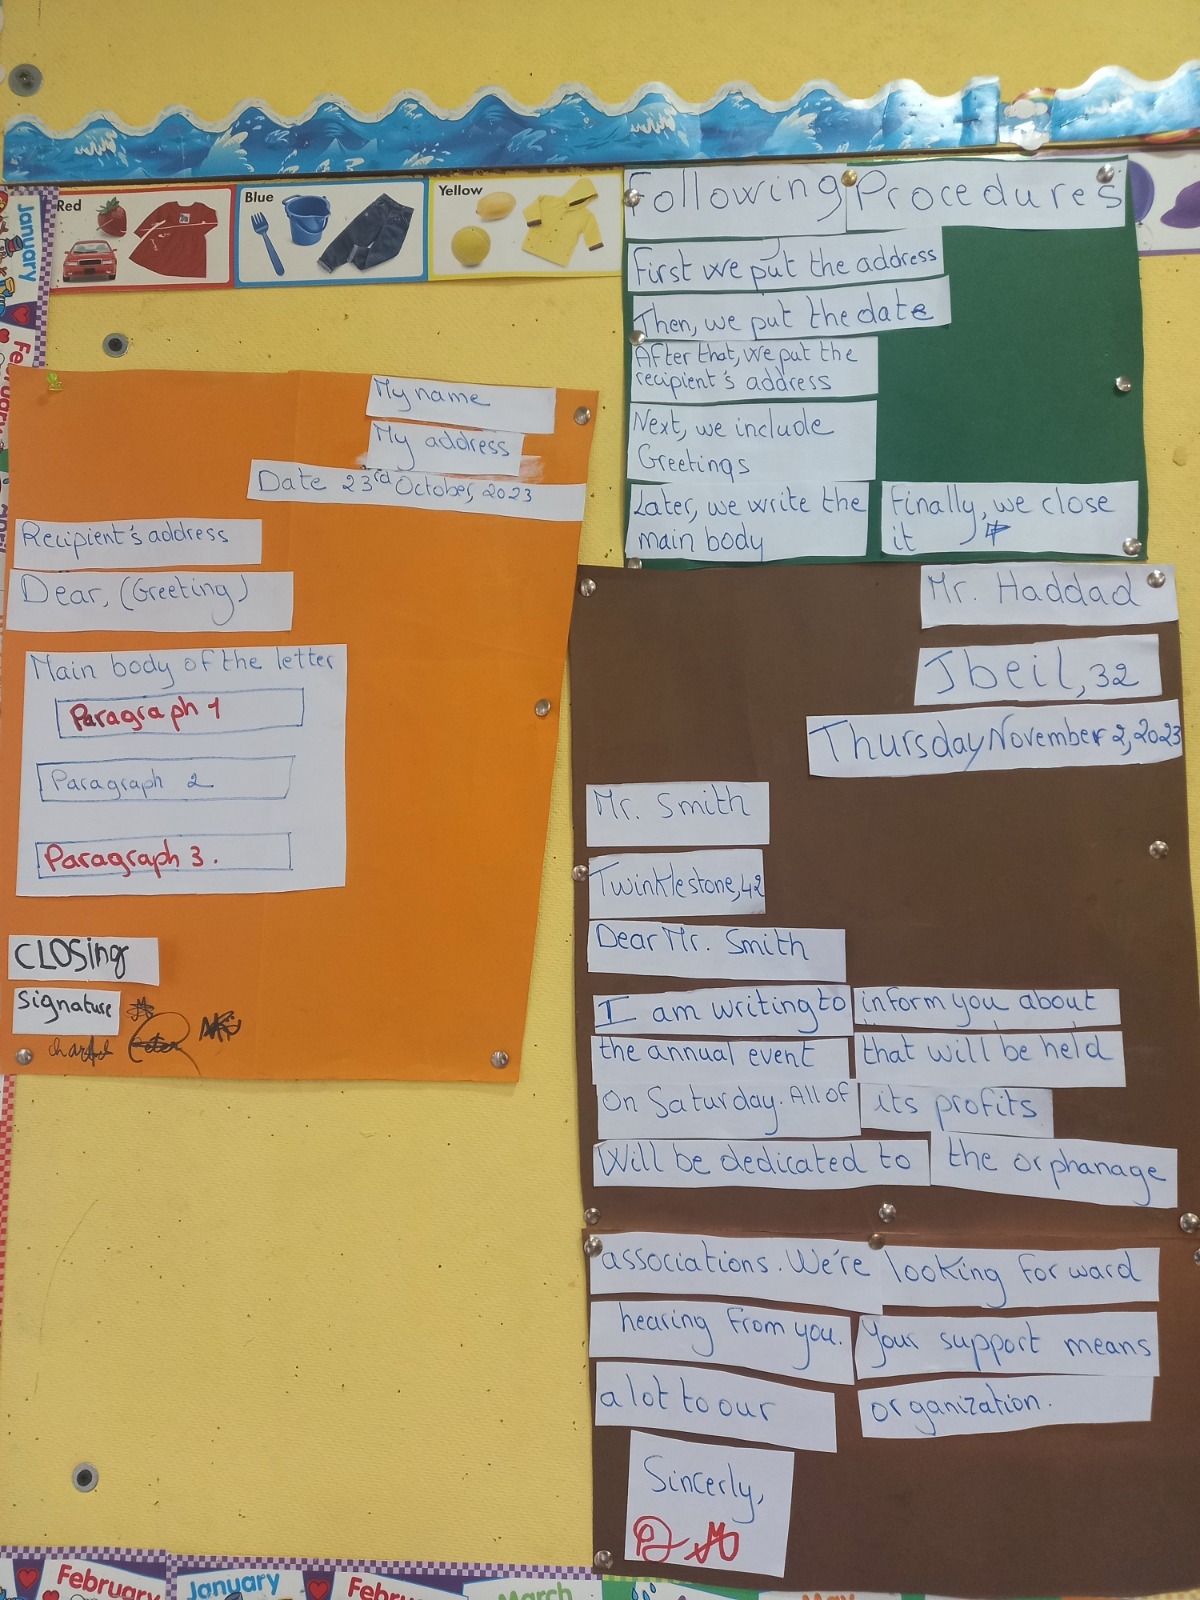 Red
Blue
Yellow
January
Following Procedures
First we put the address
Then, we put the date
After that, we put the
recipient's address
Next, we include
Greetings
Later, we write the
main body
Finally, we close
it
My name
My address
Date 23rd October, 2023
Recipient's address
Dear, (Greeting)
Main body of the letter
Paragraph 1
Paragraph 2
Paragraph 3.
CLOSing
Signature
Mr. Haddad
Jbeil, 32
Thursday November 2, 2023
Mr. Smith
Twinklestone, 42
Dear Mr. Smith
I am writing to inform you about
the annual event that will be held
on Saturday. All of its profits
Will be dedicated to the orphanage
associations. We're looking forward
hearing from you. Your support means
a lot to our organization.
Sincerly,
February
January
March